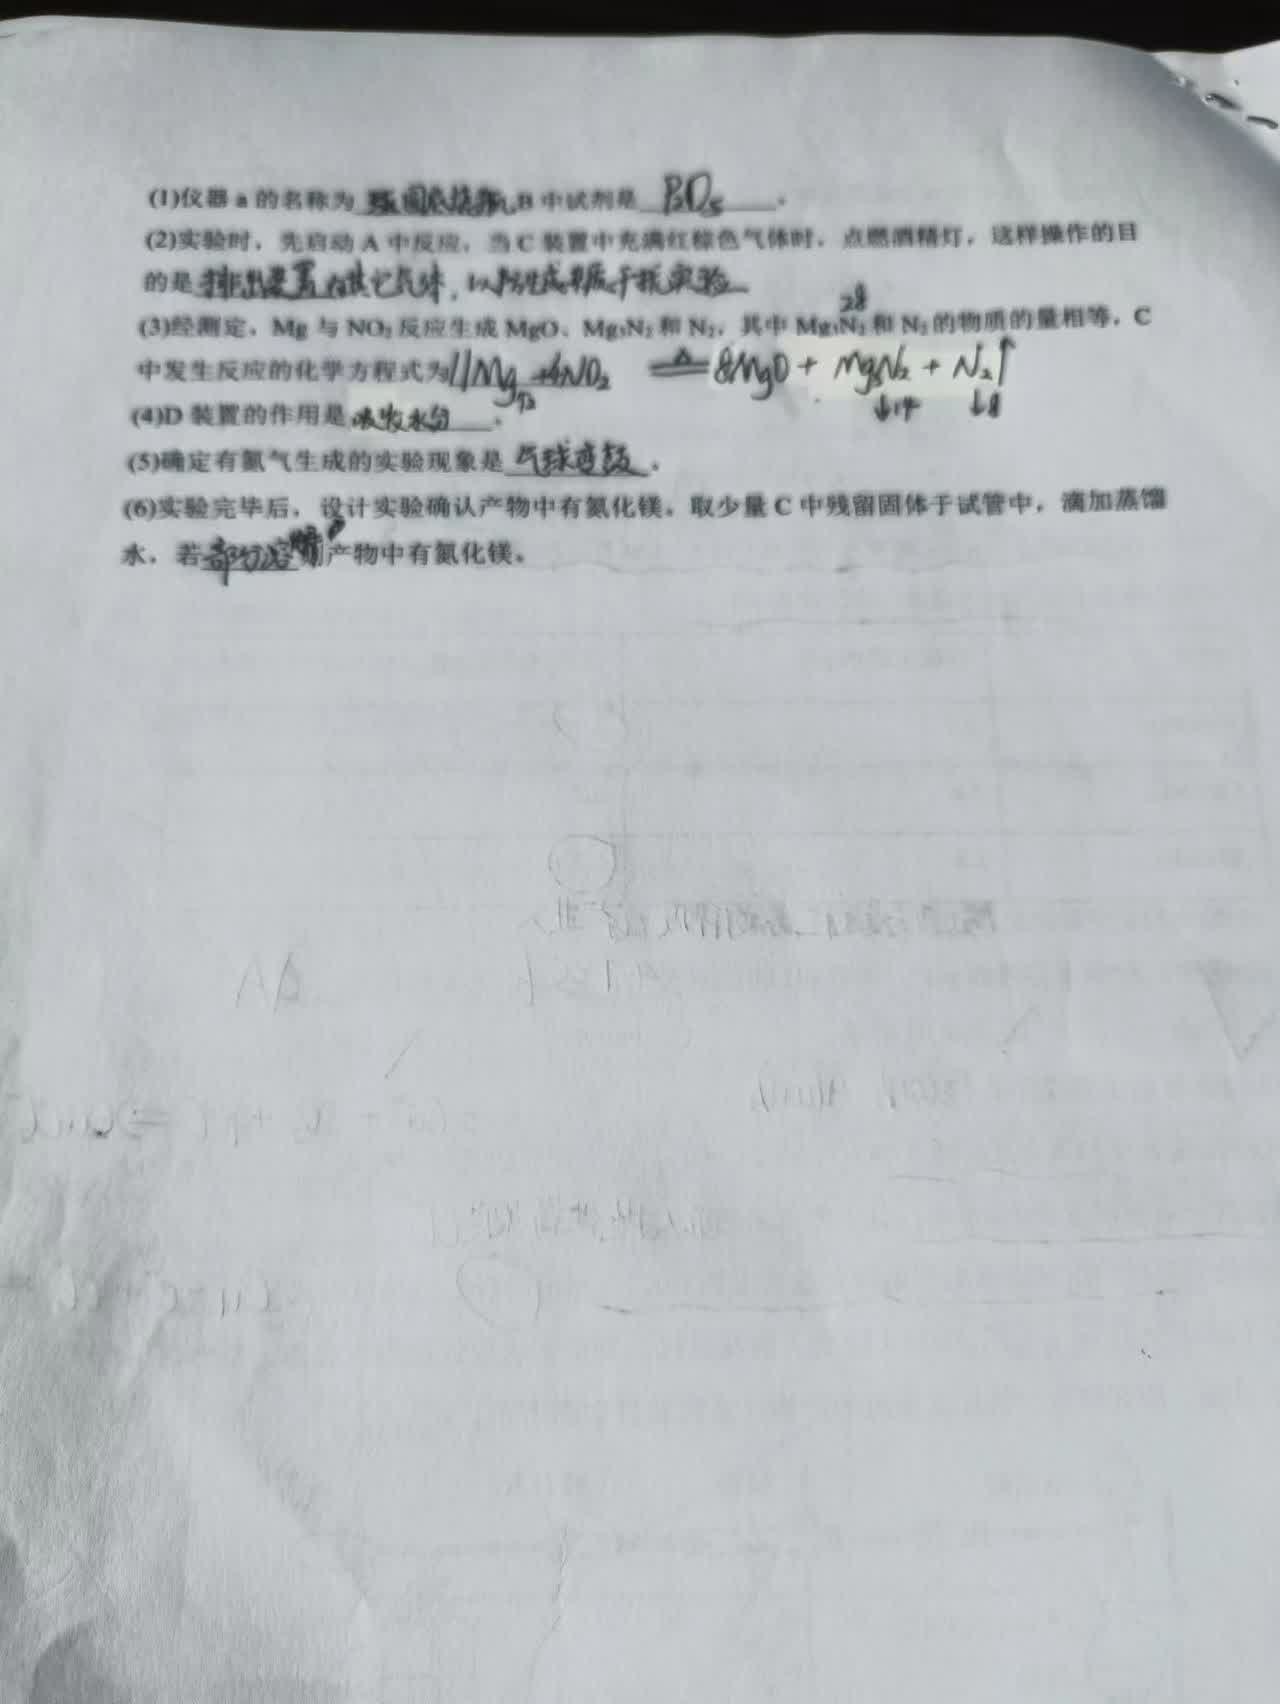 (1)仪器 a 的名称为 圆底烧瓶, B 中试剂是 P₂O₅ 。
(2)实验时，先启动 A 中反应，当 C 装置中充满红棕色气体时，点燃酒精灯，这样操作的目
的是 排出装置内其它气体，以防生成杂质干扰实验
28
(3)经测定，Mg 与 NO₂ 反应生成 MgO、Mg₃N₂ 和 N₂，其中 Mg₃N₂ 和 N₂ 的物质的量相等，C
中发生反应的化学方程式为 11Mg + 4NO₂ ≜ 8MgO + Mg₃N₂ + N₂↑
12 ↓14 ↓8
(4)D 装置的作用是 吸收水分 。
(5)确定有氮气生成的实验现象是 气球变鼓 。
(6)实验完毕后，设计实验确认产物中有氮化镁。取少量 C 中残留固体于试管中，滴加蒸馏
水，若 部分溶解 则产物中有氮化镁。